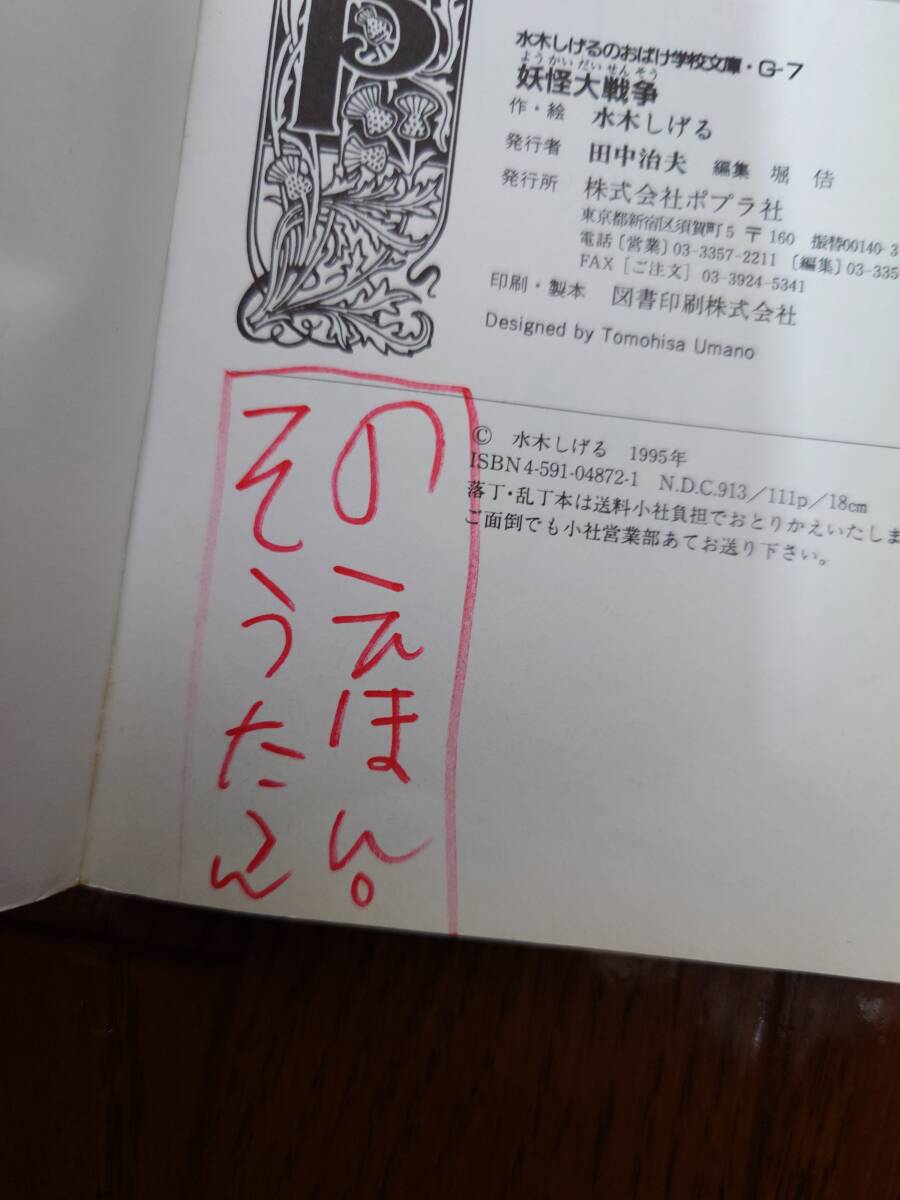 P
水木しげるのおばけ学校文庫・G-7
ようかいだいせんそう
妖怪大戦争
作・絵 水木しげる
発行者 田中治夫 編集 堀 佶
発行所 株式会社ポプラ社
東京都新宿区須賀町5 〒160 振替00140-3
電話〔営業〕03-3357-2211 〔編集〕03-335
FAX〔ご注文〕03-3924-5341
印刷・製本 図書印刷株式会社
Designed by Tomohisa Umano
© 水木しげる 1995年
ISBN4-591-04872-1 N.D.C.913／111p／18cm
落丁・乱丁本は送料小社負担でおとりかえいたしま
ご面倒でも小社営業部あてお送り下さい。
のえほん。
そうたろん